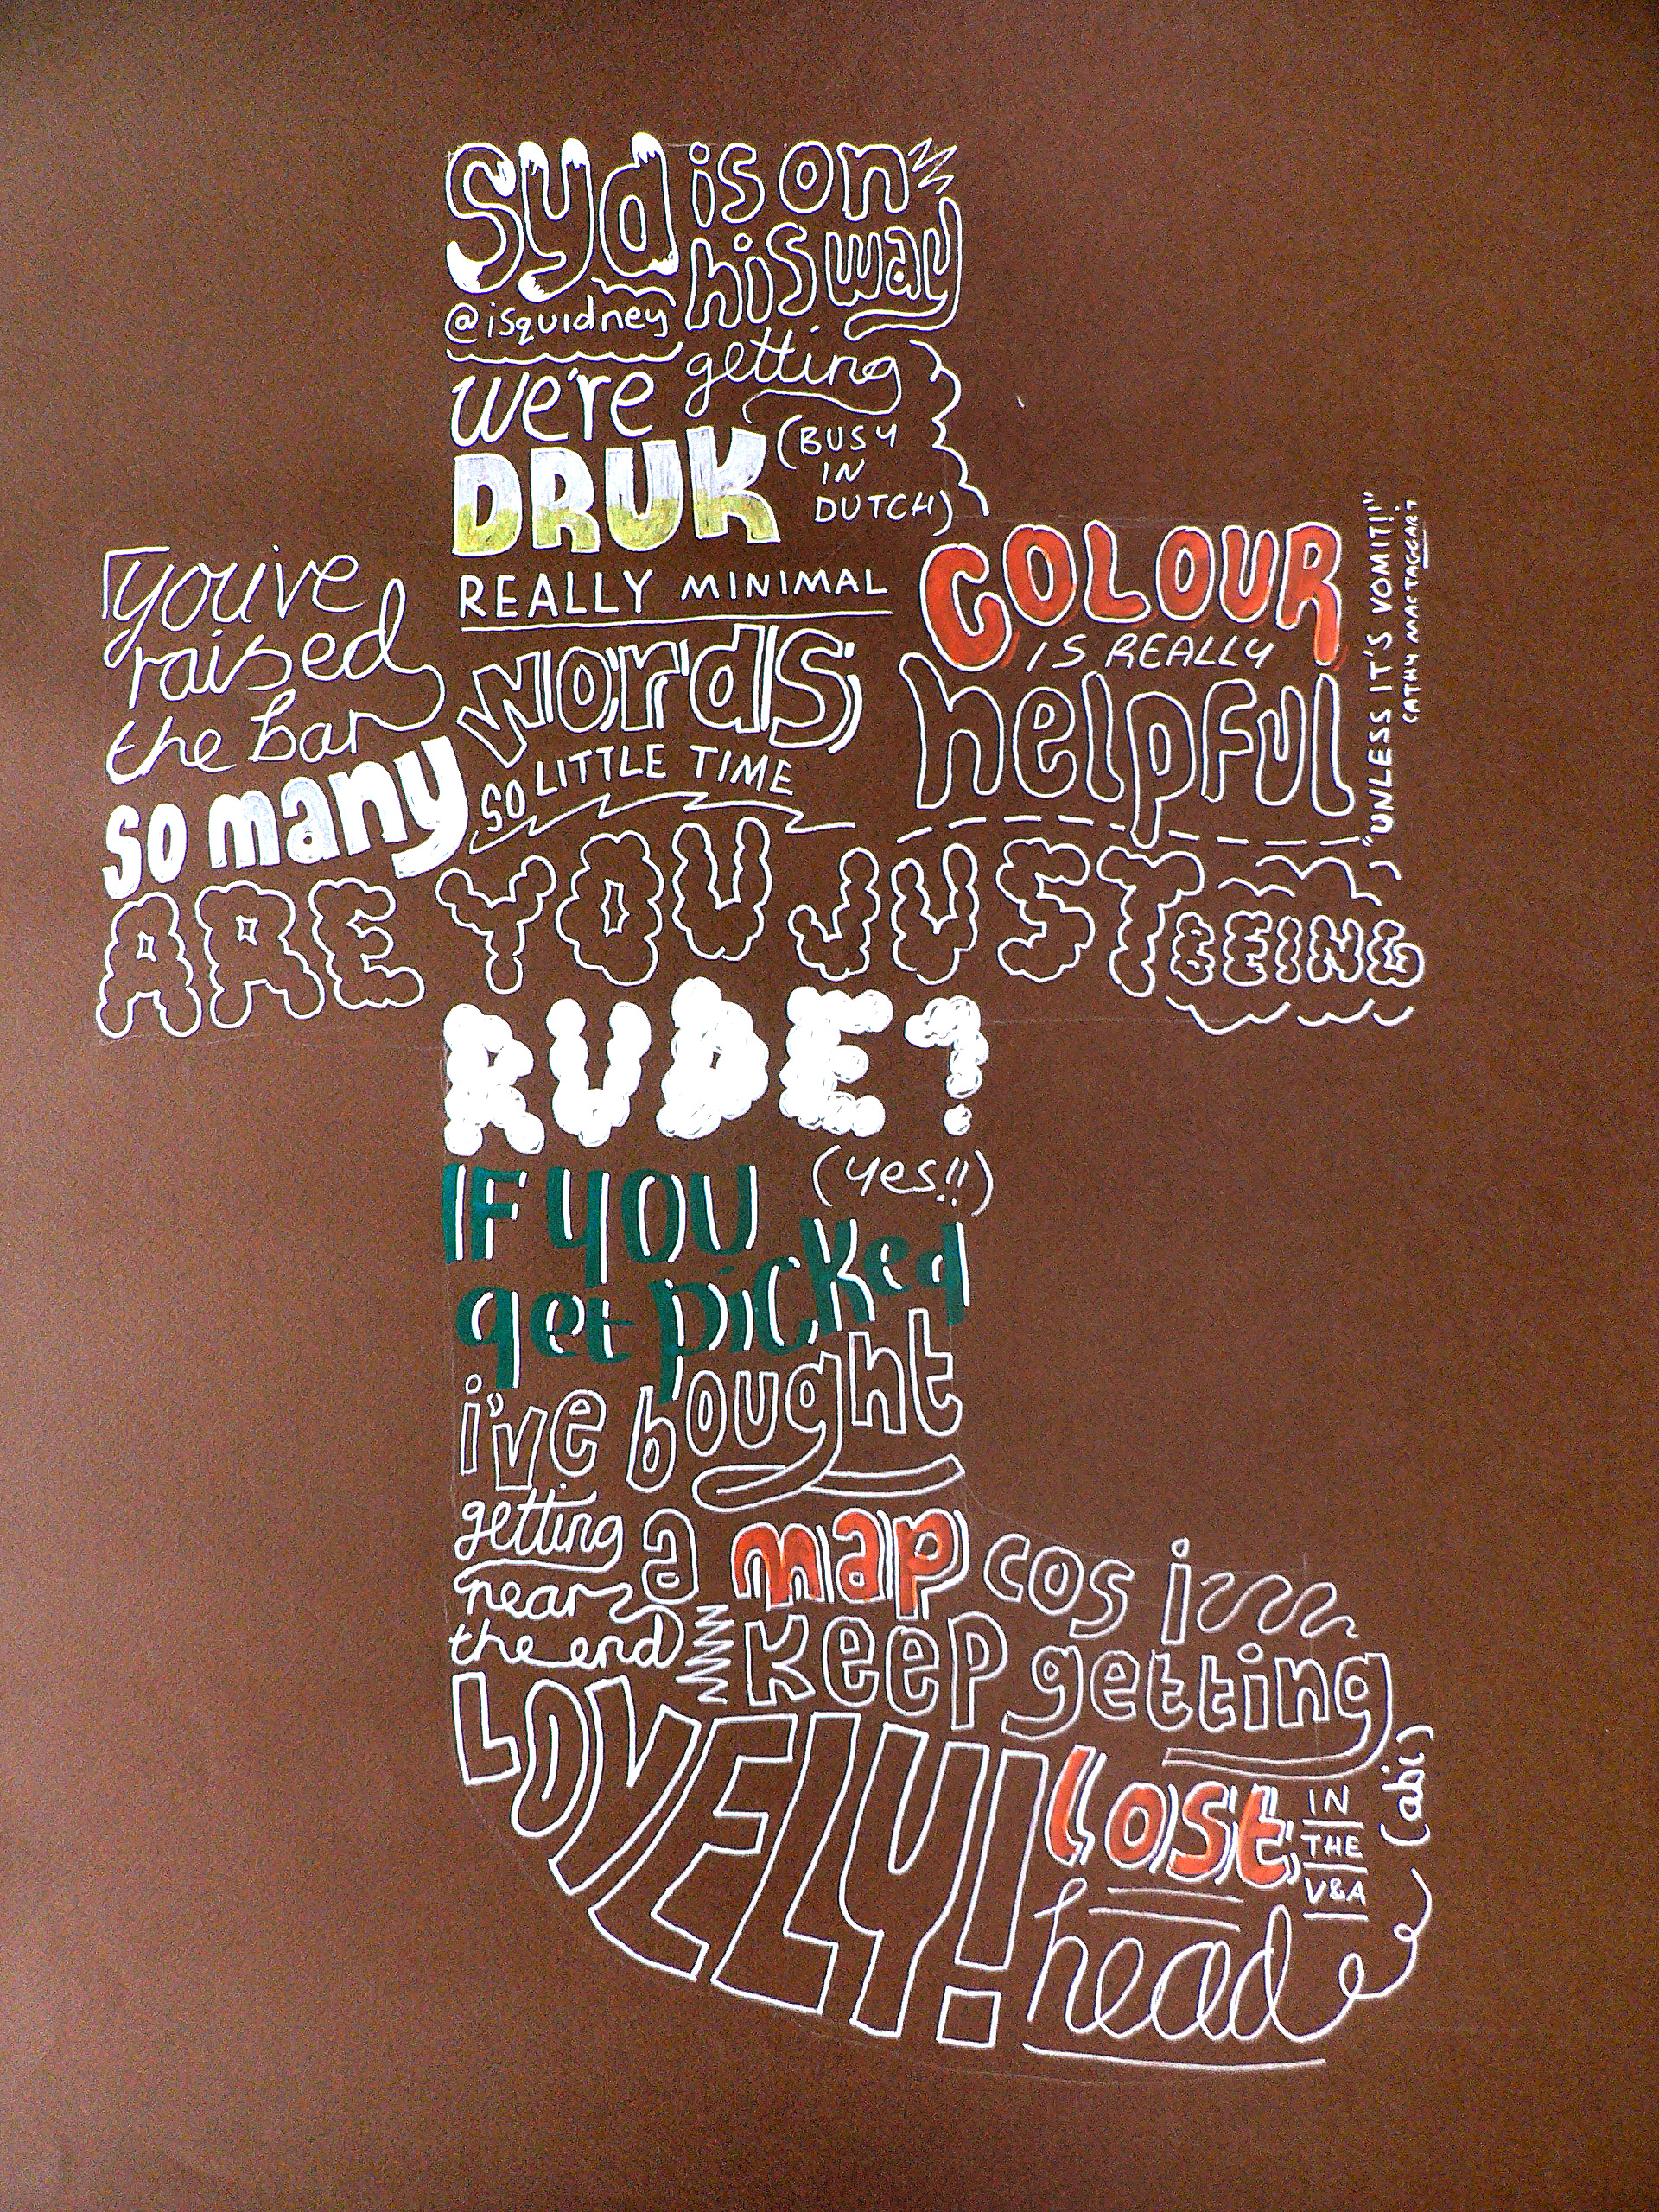 syd is on
his way
@isquidney
we're getting
DRUK (BUSY
IN
DUTCH)
REALLY MINIMAL
you've
raised
the bar
so many words
SO LITTLE TIME
COLOUR
IS REALLY
helpful
"UNLESS IT'S VOMIT!"
CATHY MACTAGGART
ARE YOU JUST BEING
RUDE?
(yes!!)
IF YOU
get picked
i've bought
a map cos i
keep getting
lost IN
THE
V&A
(abi)
getting
near
the end
LOVELY!
head